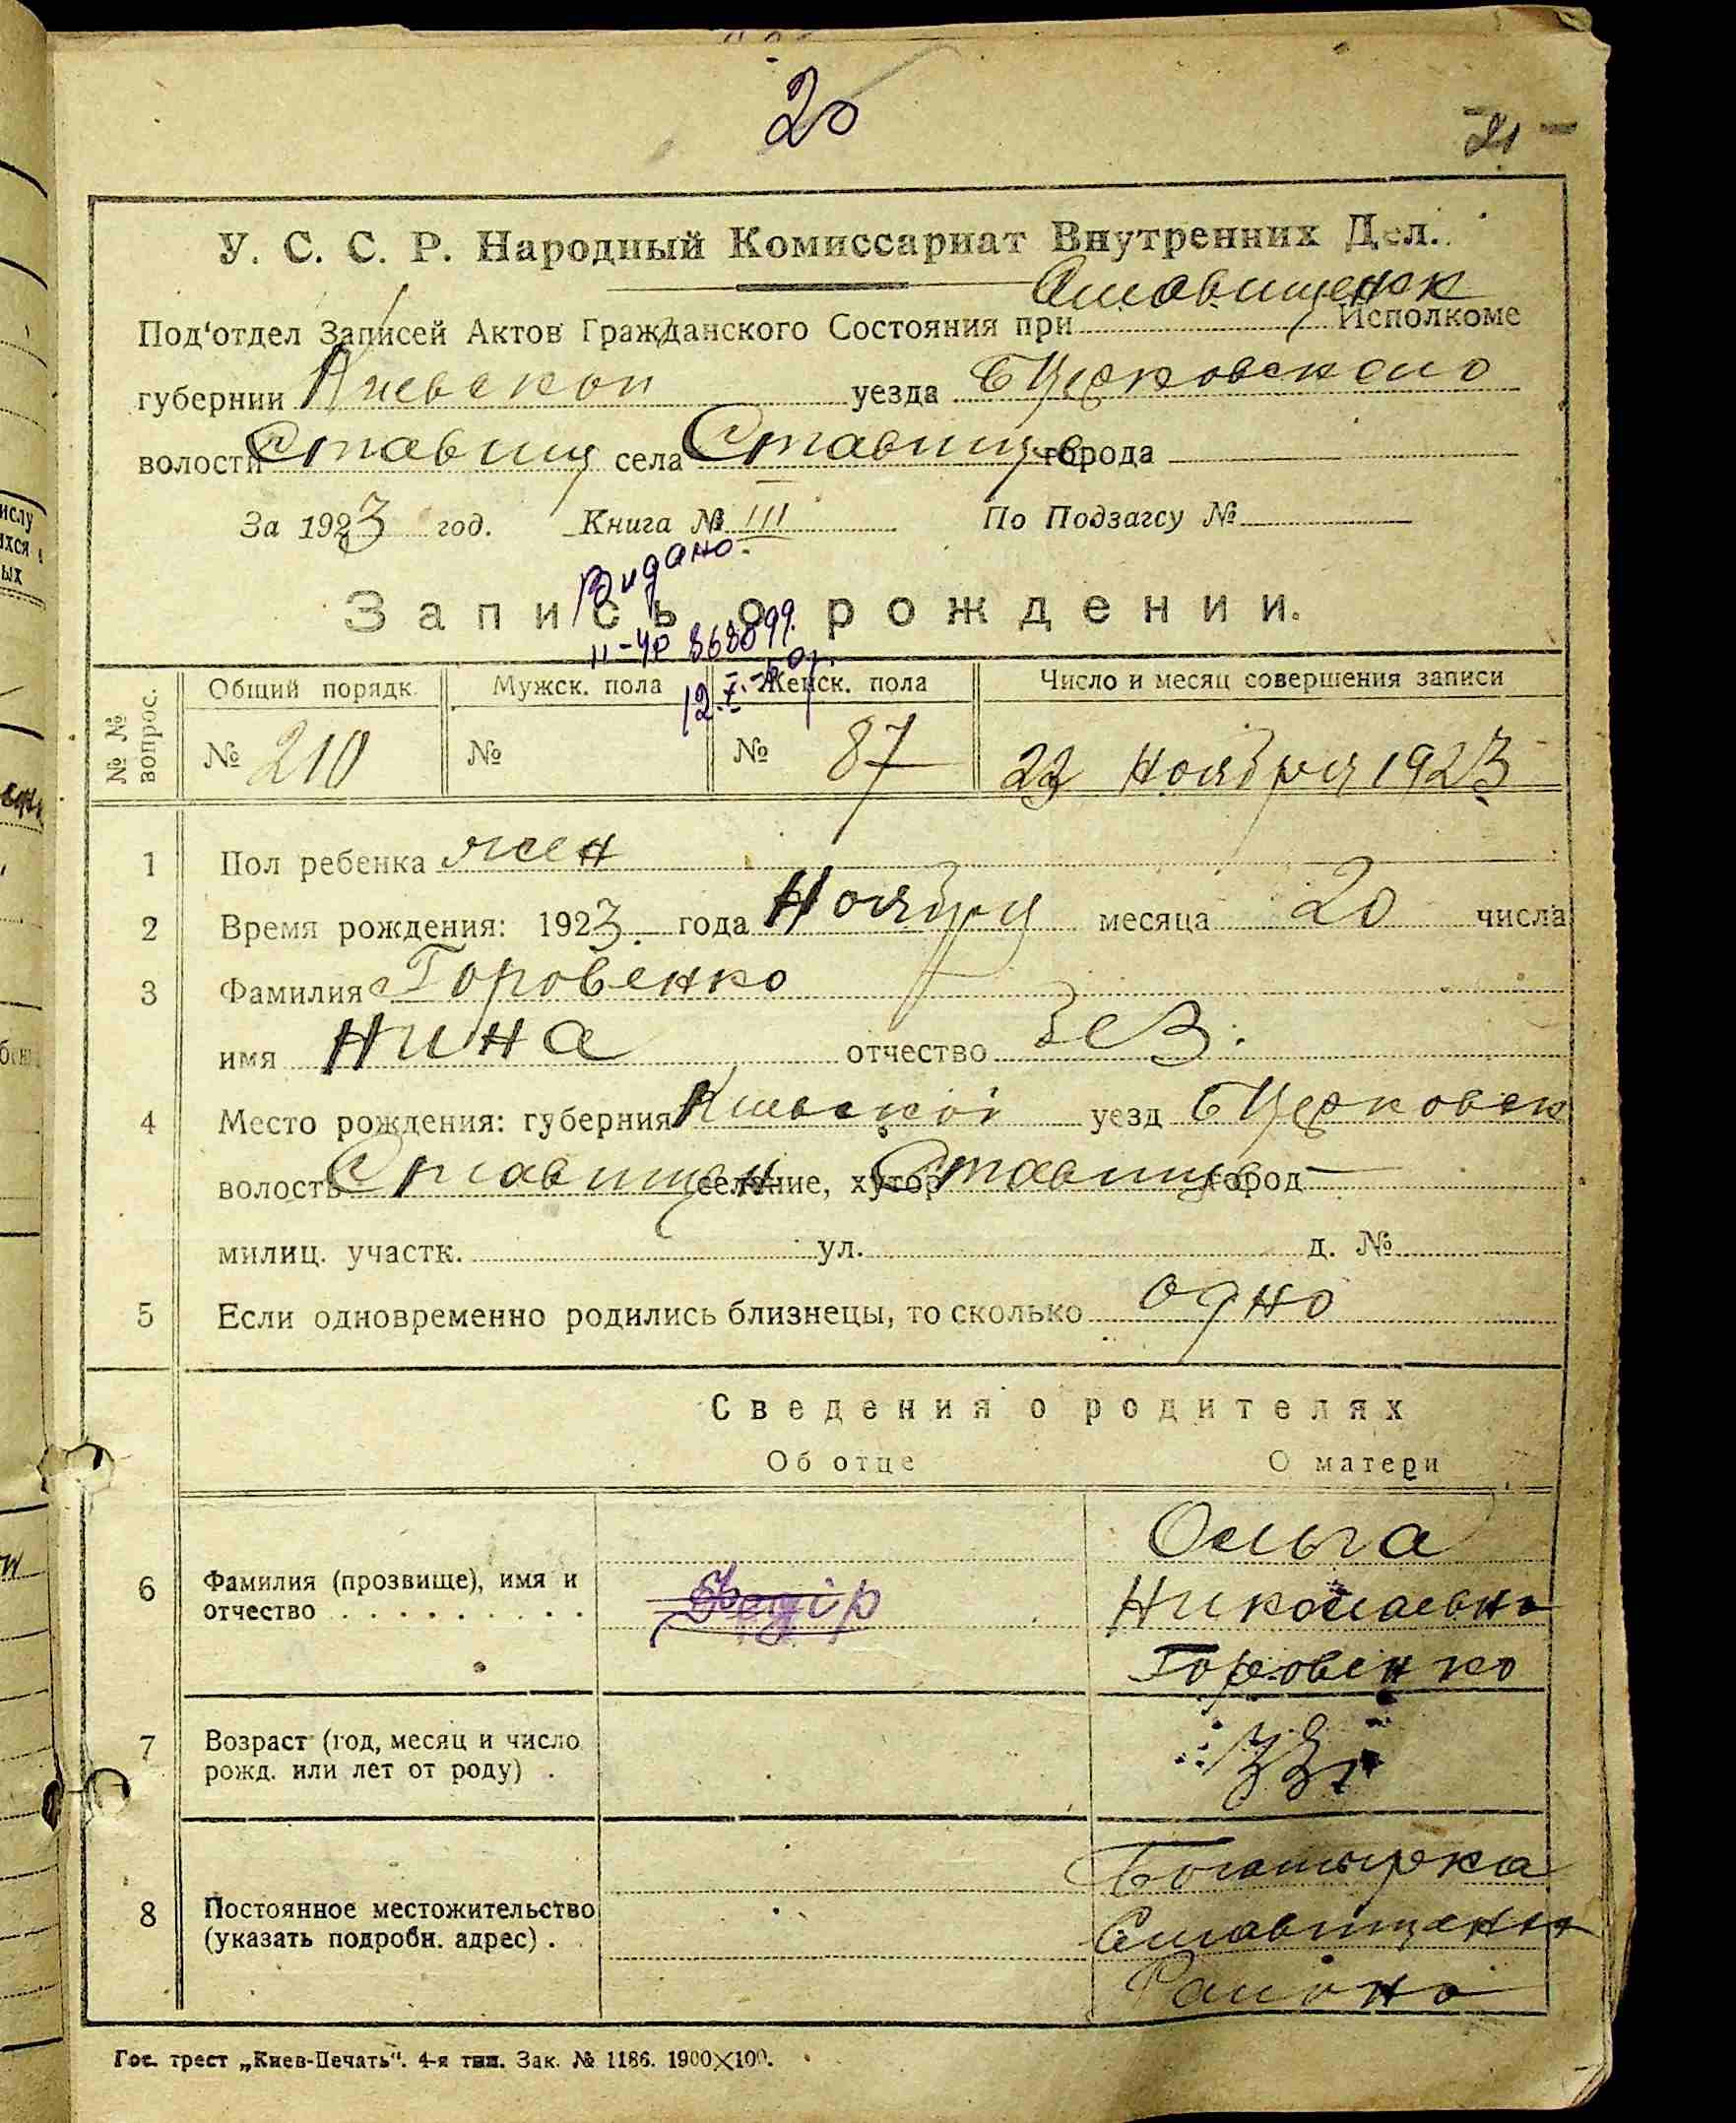 20
21
У. С. С. Р. Народный Комиссариат Внутренних Дел.
Под'отдел Записей Актов Гражданского Состояния при Ставищенск Исполкоме
губернии Киевской уезда БЦерковского
волости Ставищ села Ставище города
За 1923 год. Книга № III По Подзагсу №
Видано
Запись о рождении.
II-УР 868099.
№№ вопрос. Общий порядк. Мужск. пола Женск. пола Число и месяц совершения записи
№ 210 № № 87 22 Ноября 1923
1 Пол ребенка жен
2 Время рождения: 1923 года Ноября месяца 20 числа
3 Фамилия Горовенко
имя Нина отчество без.
4 Место рождения: губерния Киевской уезд БЦерковск
волость Ставищен селение, хутор Ставище город —
милиц. участк. ул. д. №
5 Если одновременно родились близнецы, то сколько одно
Сведения о родителях
Об отце О матери
Ольга
6 Фамилия (прозвище), имя и Федір Николаевна
отчество
Горовенко
7 Возраст (год, месяц и число
рожд. или лет от роду) .
Богатырка
8 Постоянное местожительство Ставищенск
(указать подробн. адрес) .
Района
Гос. трест „Киев-Печать". 4-я тип. Зак. № 1186. 1900×100.